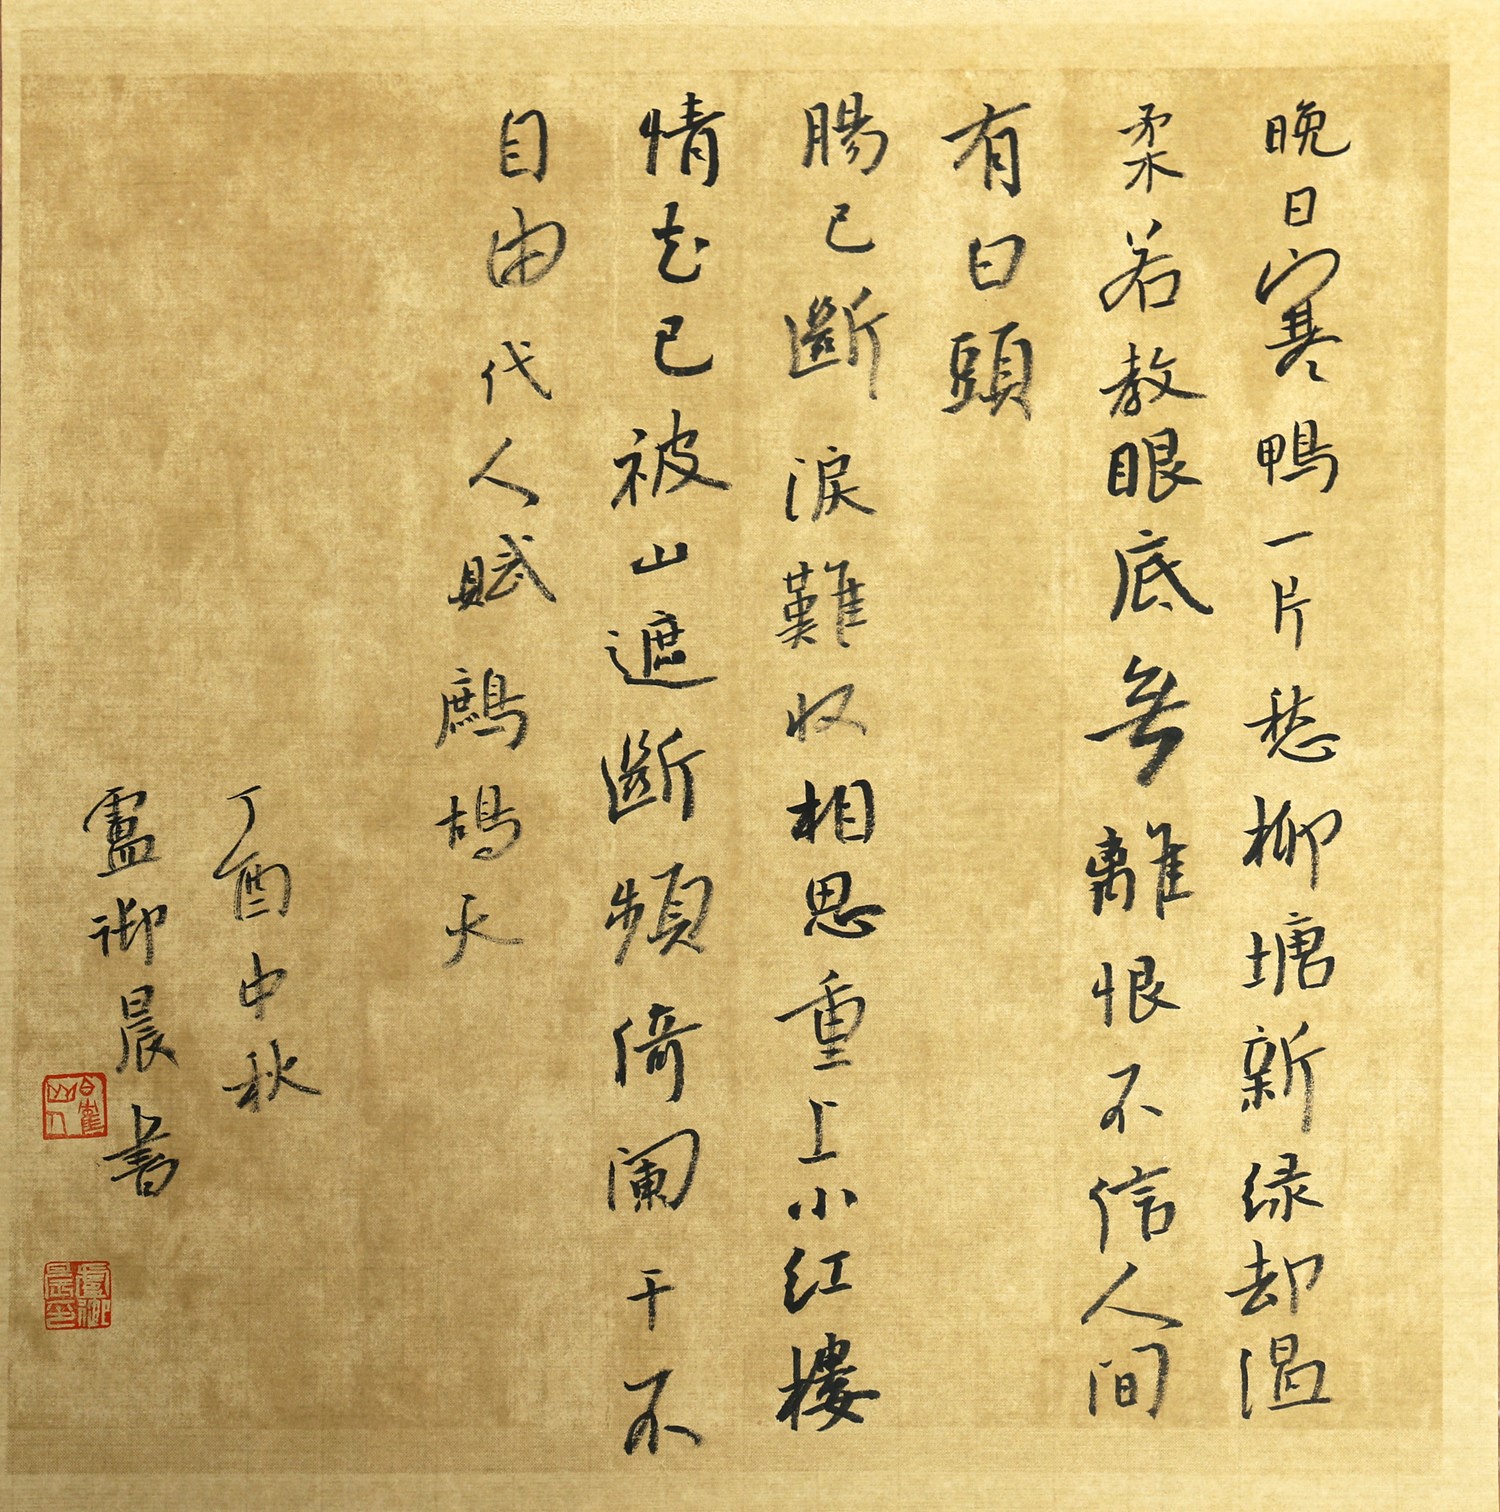 晚日寒鴨一片愁柳塘新绿却温
柔若教眼底無離恨不信人間
有白頭
腸已斷淚難收相思重上小红樓
情知已被山遮斷頻倚闌干不
自由代人賦鷓鴣天
丁酉中秋
盧御晨書
盧御晨印